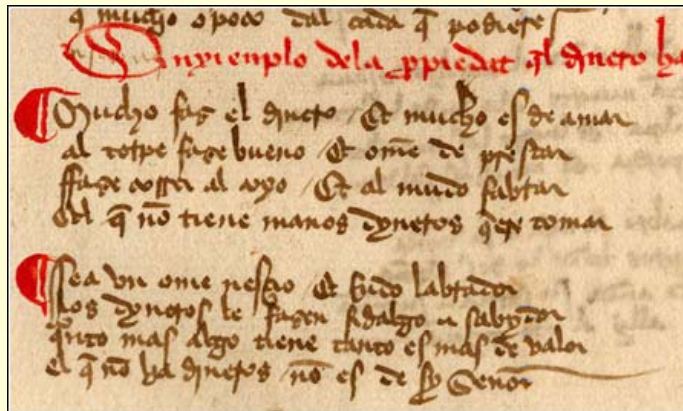 q̄ mucho o poco dal cada q̄ podiese
Enxienplo dela ꝓpiedat q̄l dinero ha
Mucho faz el dinero / Et mucho es de amar
al torpe faze bueno / Et ome de prestar
ffaze correr al coxo / Et al mudo fablar
El q̄ nō tiene manos dyneros q̄ere tomar
Sea vn ome nesçio / Et Rudo labrador
los dyneros le fazen fidalgo e sabydor
q̄nto mas algo tiene tanto es mas de valor
el q̄ nō ha dineros / nō es de sy Señor